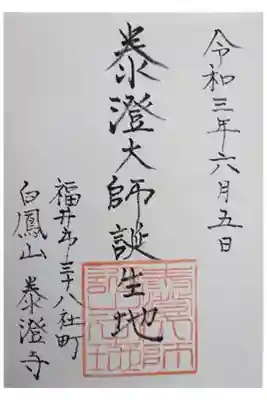 令和三年六月五日
泰澄大師誕生地
福井市三十八社町
白鳳山 泰澄寺